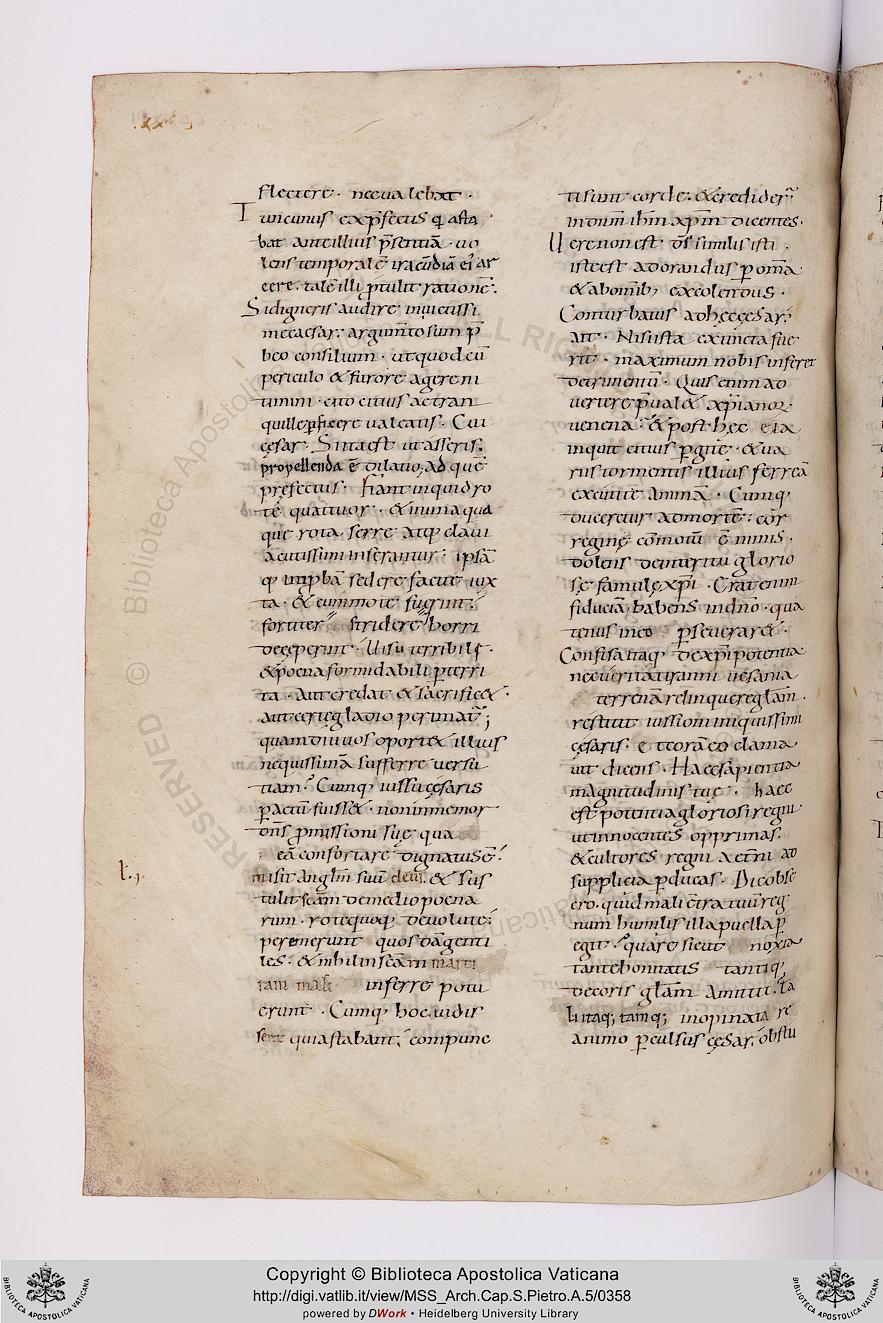 flectere· nec ualebat·
Tunc unus ex p̄fectis q̣ asta
bat ante illius p̄sentiā· uo
lens temporalē iracūdiā ei ar
cere· talē illi p̄tulit rationē·
Si digneris audire inuictissi
me caesar; argumtō sum p̄
beo consilium· ut quod cū
periculo & furore agere ni
timini· cito citius ac tran
quille p̄ficere ualeatis· Cui
cęsar· Si ita est ut asseris·
propellenda ē dilatio, Ad quē
pręfectus· Fiant inquid ro
tę quattuor· & in unaqua
que rota serre atq; claui
acutissimi inserantur; ipsā
q; improbā sedere facite iux
ta· & cum mote fuerint;
fortiter stridere horri
de ceperint· Uisu terribile·
& poena formidabili p̄terri
ta· Aut credat & sacrifice&·
aut certe gladio perimat~;
quam diu uos oport& illius
nequissimā sufferre uersu
tiam; Cumq; iussu cęsaris
p̄actū fuiss&· non inmemor
dn̄s p̄missioni suę qua
eā confortare dignatus ē;
misit anglm̄ suū deus & sus
tulit scām de medio poena
rum· rotę quoq; deuolutę;
peremerunt quos dā genti
les· & nihil in scām marti
ram mali inferre potu
erunt· Cumq; hoc uidis
sent qui astabant; compunc
ti sunt corde· & crediderṭ
in dnm̄ ihm̄ xp̄m dicentes·
Uere non est ds̄ similis isti·
iste est adorandus p̄ omā
& ab omīb; excolendus·
Conturbatus ad hęc cęsar;
ait· Nisi ista extincta fue
rit· maximum nobis inferet
detrimentū· Quis enim ad
uertere p̄ual& xp̄ianoꝝ
uenena; & post hęc eia
inquit citius p̄gite· & ua
riis tormentis illius ferreā
excutite animā· Cumq;
duceretur ad mortē; cor
reginę cōmotū ē nimis·
dolens de interitu glorio
sę famulę xp̄i· Erat enim
fiduciā habens in dn̄o· qua
tenus in eo p̄seuerar&·
Confisa itaq; de xp̄i potentia
nec uerita tiranni uesania
terrenā relinquere glām·
restitit iussioni iniquissimi
cęsaris; et corā eo clama
uit dicens· Haec sapientia
magnitudinis tuę· haec
est potentia gloriosi regni·
ut innocentes opprimas·
& cultores regni aetn̄i ad
supplicia p̄ducas· Dic obse
cro· quid mali cōtra tuū reg
num humilis illa puella p̄
egit; quare sicut noxia
tantę bonitatis tantiq;
decoris glām amittit· ta
li itaq; tamq; inopinata re
animo p̄culsus cęsar; obstu